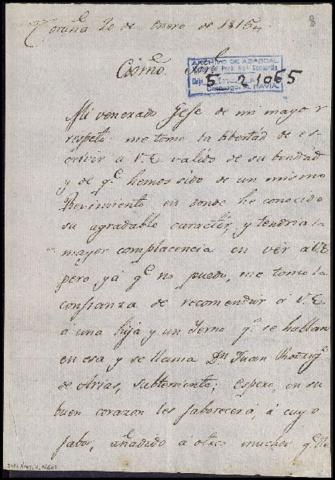 Coruña 20 de Enero de 1815
8
Exômo Señor
ARCHIVO DE ABADDAL
5 21065
Mi venerado Gefe de mi mayor
respeto me tomo la libertad de es
crivir a V.E. valido de su bondad
y de qe hemos sido de un mismo
Reximiento en donde he conocido
su agradable caracter, y tendria la
mayor complacencia en ver a V.E
pero ya qe no puedo, me tomo la
confianza de recomendar á V.E.
á una hija y un Yerno qe se hallan
en esa y se llama Dn Juan
de obias, subteniente; espero, en su
buen corazon les faborecerá, á cuyo
fabor, añadido a otros muchos qe